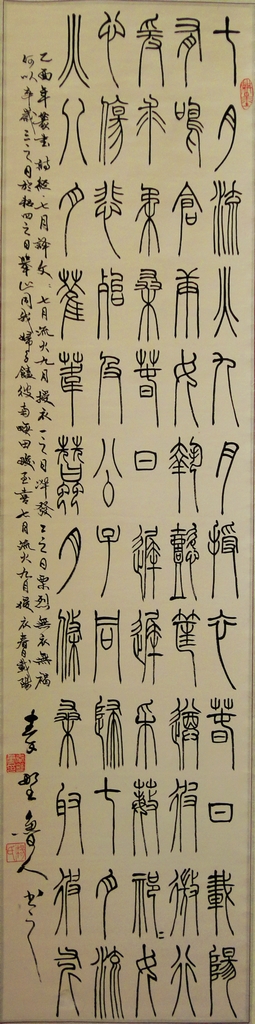 七月流火九月授衣春日載陽
有鳴倉庚女執懿筐遵彼微行
爰求柔桑春日遲遲采蘩祁〻女
心傷悲殆及公子同歸七月流
火八月萑葦蠶月條桑取彼斧
乙酉年書詩經七月詩文：七月流火九月授衣一之日觱發二之日栗烈無衣無褐
何以卒歲三之日於耜四之日舉止同我婦子饁彼南畝田畯至喜七月流火九月授衣春日載陽
野魯人书之